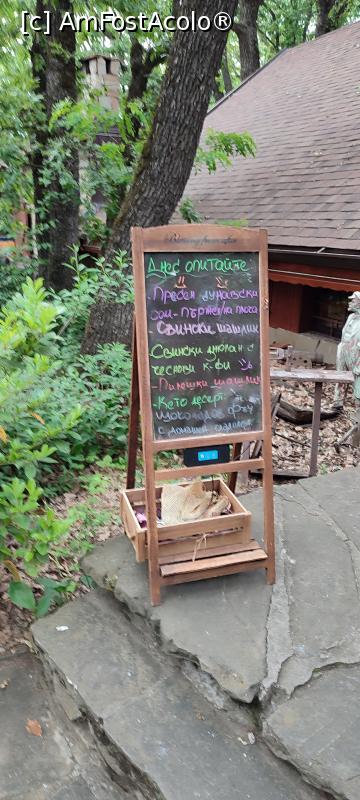 [c] AmFostAcolo®
Днес опитайте
- Пресен дунавски
сом - пържен
- Свински шашлик
- Свински джолан с
чеснови к-фи
- Пилешки шашлик
- Кето десерт
шоколадов
с домашен сладолед